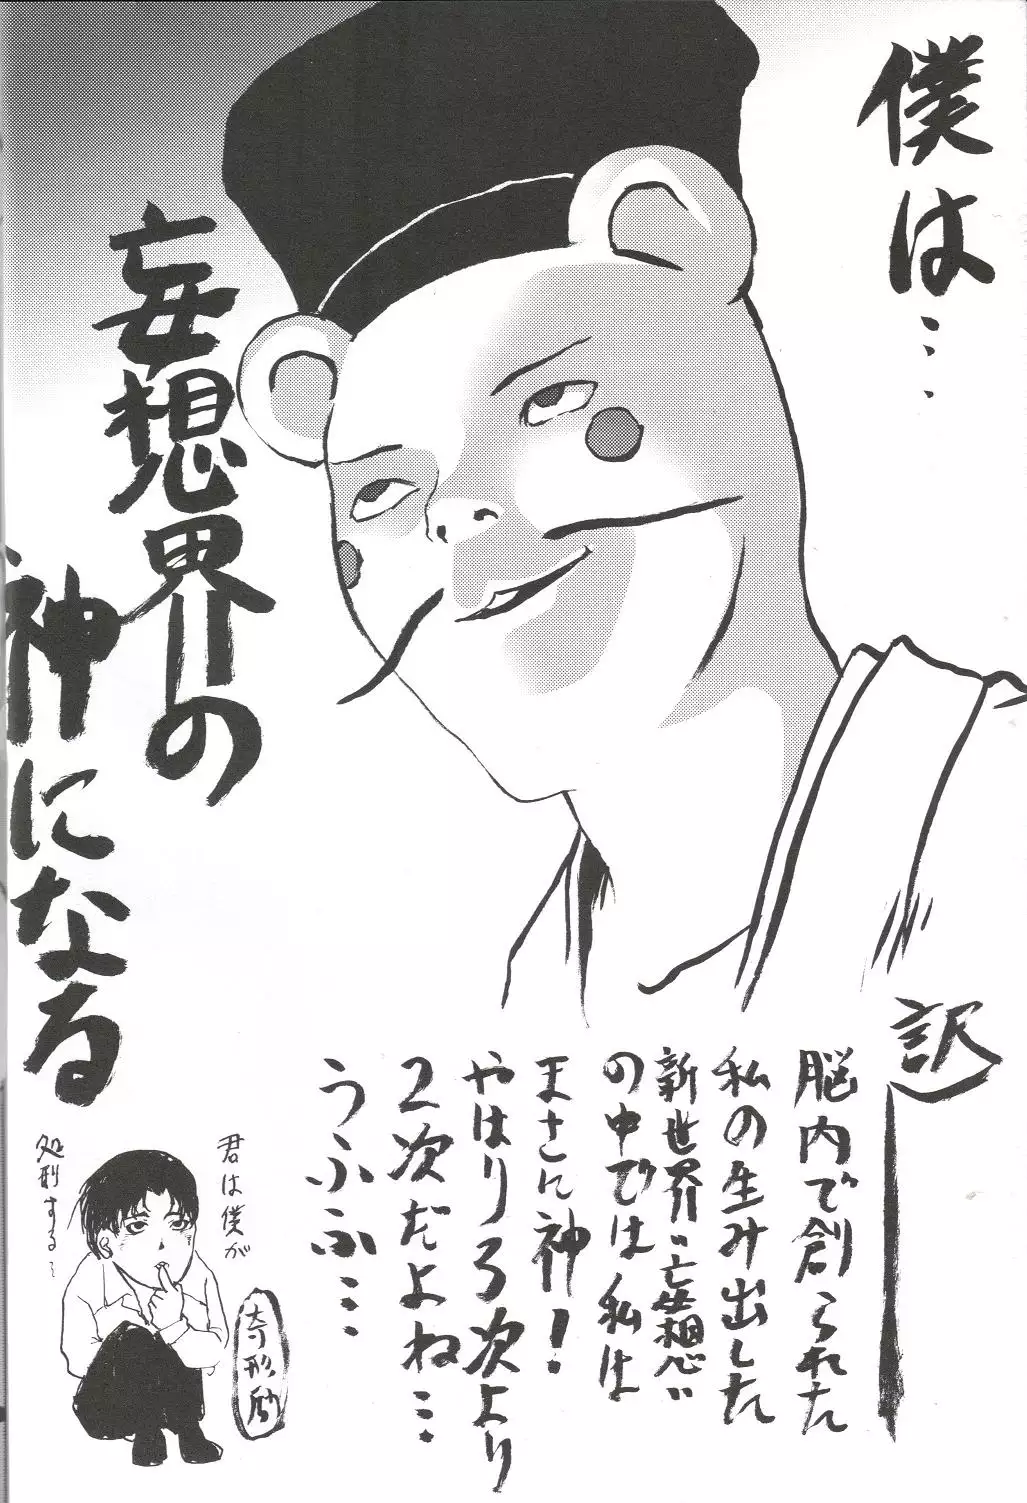 僕は…
妄想界の
神になる
訳
脳内で創られた
私の生み出した
新世界“妄想”
の中では私は
まさに神！
やはり3次より
2次だよね…
うふふ…
君は僕が
処刑する…
奇形